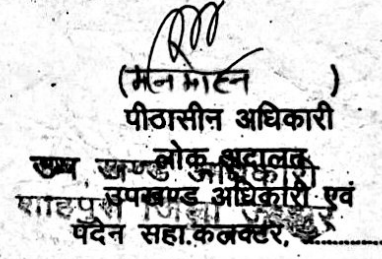 (मनमोहन)
पीठासीन अधिकारी
लोक अदालत
उप खण्ड अधिकारी
उपखण्ड अधिकारी एवं
शाहपुरा जिला जयपुर
पदेन सहा.कलक्टर, ............